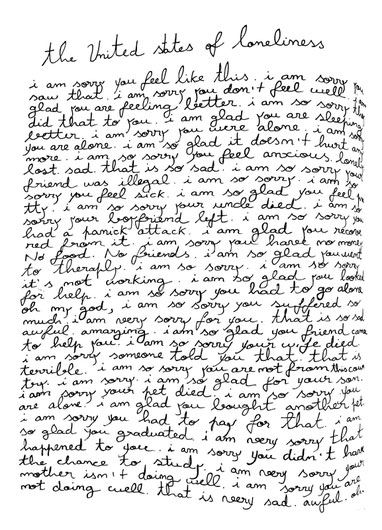 the United states of loneliness
i am sorry you feel like this. i am sorry you
saw that. i am sorry you don't feel well. i am
glad you are feeling better. i am so sorry they
did that to you. i am glad you are sleeping
better. i am sorry you were alone. i am sorry
you are alone. i am so glad it doesn't hurt any
more. i am so sorry you feel anxious. lonely
lost. sad. that is so sad. i am so sorry your
friend was illegal. i am so sorry. i am so
sorry you feel sick. i am so glad you feel pre
tty. i am so sorry your uncle died. i am so
sorry your boyfriend left. i am so sorry you
had a panick attack. i am glad you recove
red from it. i am sorry you have no money
No food. No friends. i am so glad you went
to theraply. i am so sorry. i am so sorry
it's not working. i am so glad you looked
for help. i am so sorry you had to go alone
oh my god, i am so sorry you suffered so
much. i am very sorry for you. that is so sad
awful. amazing. i am so glad you friend came
to help you. i am so sorry your wife died
i am sorry someone told you that. that is
terrible. i am so sorry you are not from this coun
try. i am sorry. i am so glad for your son.
i am sorry your pet died. i am so sorry you
are alone. i am glad you bought another pet.
i am sorry you had to pay for that. i am
so glad you graduated. i am very sorry that
happened to you. i am sorry you didn't have
the chance to study. i am very sorry your
mother isn't doing well. i am sorry you are
not doing well. that is very sad. awful. oh.